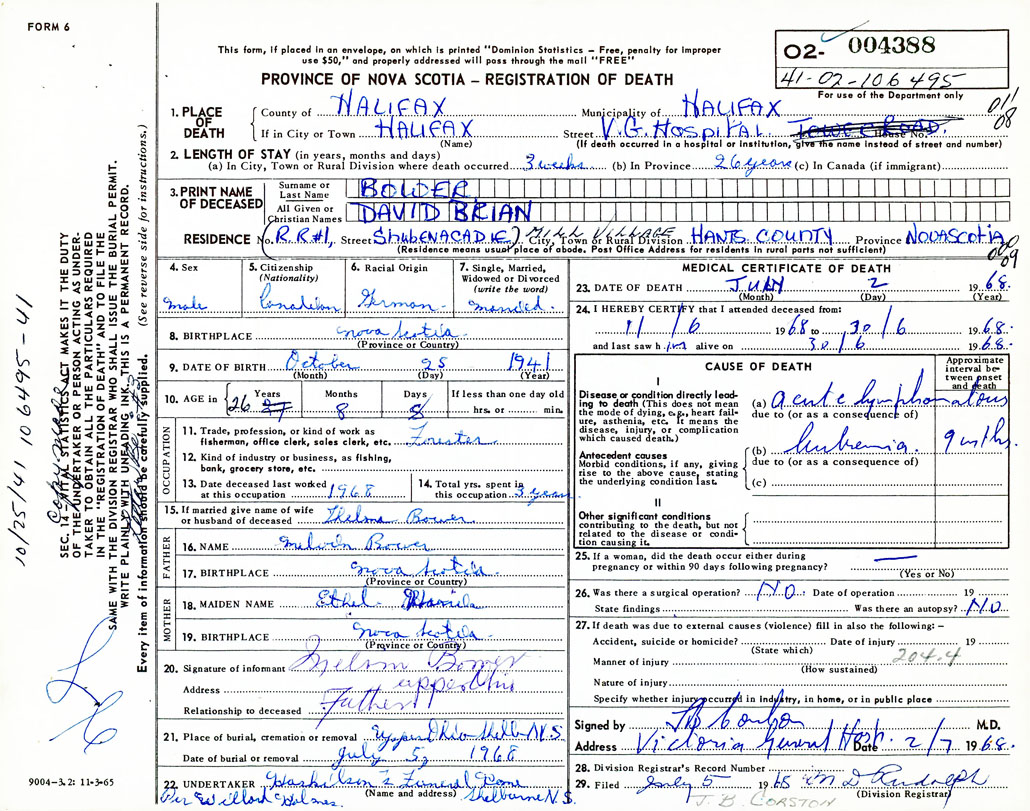 FORM 6
This form, if placed in an envelope, on which is printed "Dominion Statistics – Free, penalty for improper
use $50," and properly addressed will pass through the mail "FREE"
PROVINCE OF NOVA SCOTIA – REGISTRATION OF DEATH
02- 004388
41-02-106495
For use of the Department only
011
08
1. PLACE OF DEATH
County of HALIFAX Municipality of HALIFAX
If in City or Town HALIFAX Street V.G. HOSPITAL TOWER ROAD. House No.
(Name) (If death occurred in a hospital or institution, give the name instead of street and number)
2. LENGTH OF STAY (in years, months and days)
(a) In City, Town or Rural Division where death occurred 3 weeks (b) In Province 26 years (c) In Canada (if immigrant)
3. PRINT NAME OF DECEASED
Surname or Last Name BOWER
All Given or Christian Names DAVID BRIAN
RESIDENCE No. (R.R#1, Street SHUBENACADIE) MILL VILLAGE City, Town or Rural Division HANTS COUNTY Province NOVA SCOTIA
(Residence means usual place of abode. Post Office Address for residents in rural parts not sufficient)
09
4. Sex
male
5. Citizenship (Nationality)
Canadian
6. Racial Origin
German
7. Single, Married, Widowed or Divorced (write the word)
married
8. BIRTHPLACE Nova Scotia
(Province or Country)
9. DATE OF BIRTH October 25 1941
(Month) (Day) (Year)
10. AGE in Years 26 27 Months 8 Days 8 If less than one day old hrs. or min.
OCCUPATION
11. Trade, profession, or kind of work as fisherman, office clerk, sales clerk, etc. Forester
12. Kind of industry or business, as fishing, bank, grocery store, etc.
13. Date deceased last worked at this occupation 1968
14. Total yrs. spent in this occupation 3 years
15. If married give name of wife or husband of deceased Thelma Bower
FATHER
16. NAME Melvin Bower
17. BIRTHPLACE Nova Scotia
(Province or Country)
MOTHER
18. MAIDEN NAME Ethel
19. BIRTHPLACE Nova Scotia
(Province or Country)
20. Signature of informant Bower
Address upper Ohio
Relationship to deceased Father
21. Place of burial, cremation or removal Upper Ohio Shelb. N.S.
Date of burial or removal July 5, 1968
22. UNDERTAKER Funeral Home
(Name and address)
Per Willard Holmes Shelburne N.S.
MEDICAL CERTIFICATE OF DEATH
23. DATE OF DEATH JULY 2 1968.
(Month) (Day) (Year)
24. I HEREBY CERTIFY that I attended deceased from:
11/6 1968 to 30/6 1968.
and last saw him alive on 30/6 1968.
CAUSE OF DEATH
Approximate interval between onset and death
I
Disease or condition directly leading to death (This does not mean the mode of dying, e.g., heart failure, asthenia, etc. It means the disease, injury, or complication which caused death.)
(a) acute lymphomatous
due to (or as a consequence of)
Antecedent causes
Morbid conditions, if any, giving rise to the above cause, stating the underlying condition last.
(b) leukemia. 9 mths
due to (or as a consequence of)
(c)
II
Other significant conditions contributing to the death, but not related to the disease or condition causing it.
25. If a woman, did the death occur either during pregnancy or within 90 days following pregnancy?
(Yes or No)
26. Was there a surgical operation? NO. Date of operation 19
State findings Was there an autopsy? NO
27. If death was due to external causes (violence) fill in also the following: –
Accident, suicide or homicide? Date of injury 19
(State which)
204.4
Manner of injury
(How sustained)
Nature of injury
Specify whether injury occurred in industry, in home, or in public place
Signed by M.D.
Address Victoria General Hosp. Date 2/7 1968.
28. Division Registrar's Record Number
29. Filed July 5 1968 M D Rudolph
(Division Registrar)
J. B. CORSTON
9004-3.2: 11-3-65
10/25/41 106495-41
SEC. 14 – VITAL STATISTICS ACT MAKES IT THE DUTY
OF THE UNDERTAKER OR PERSON ACTING AS UNDER-
TAKER TO OBTAIN ALL THE PARTICULARS REQUIRED
IN THE "REGISTRATION OF DEATH" AND TO FILE THE
SAME WITH THE DIVISION REGISTRAR WHO SHALL ISSUE THE BURIAL PERMIT.
WRITE PLAINLY WITH UNFADING INK. THIS IS A PERMANENT RECORD.
Every item of information should be carefully supplied. (See reverse side for instructions.)